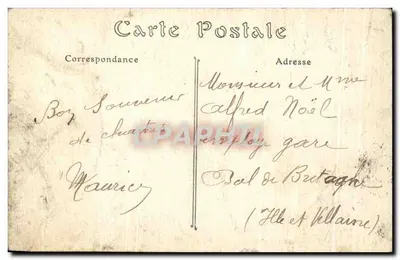 Carte Postale
Correspondance
Adresse
Bon Souvenir
de
Maurice
Monsieur et Mme
Alfred Noël
employé gare
Dol de Bretagne
(Ille et Vilaine)
CPARAMA